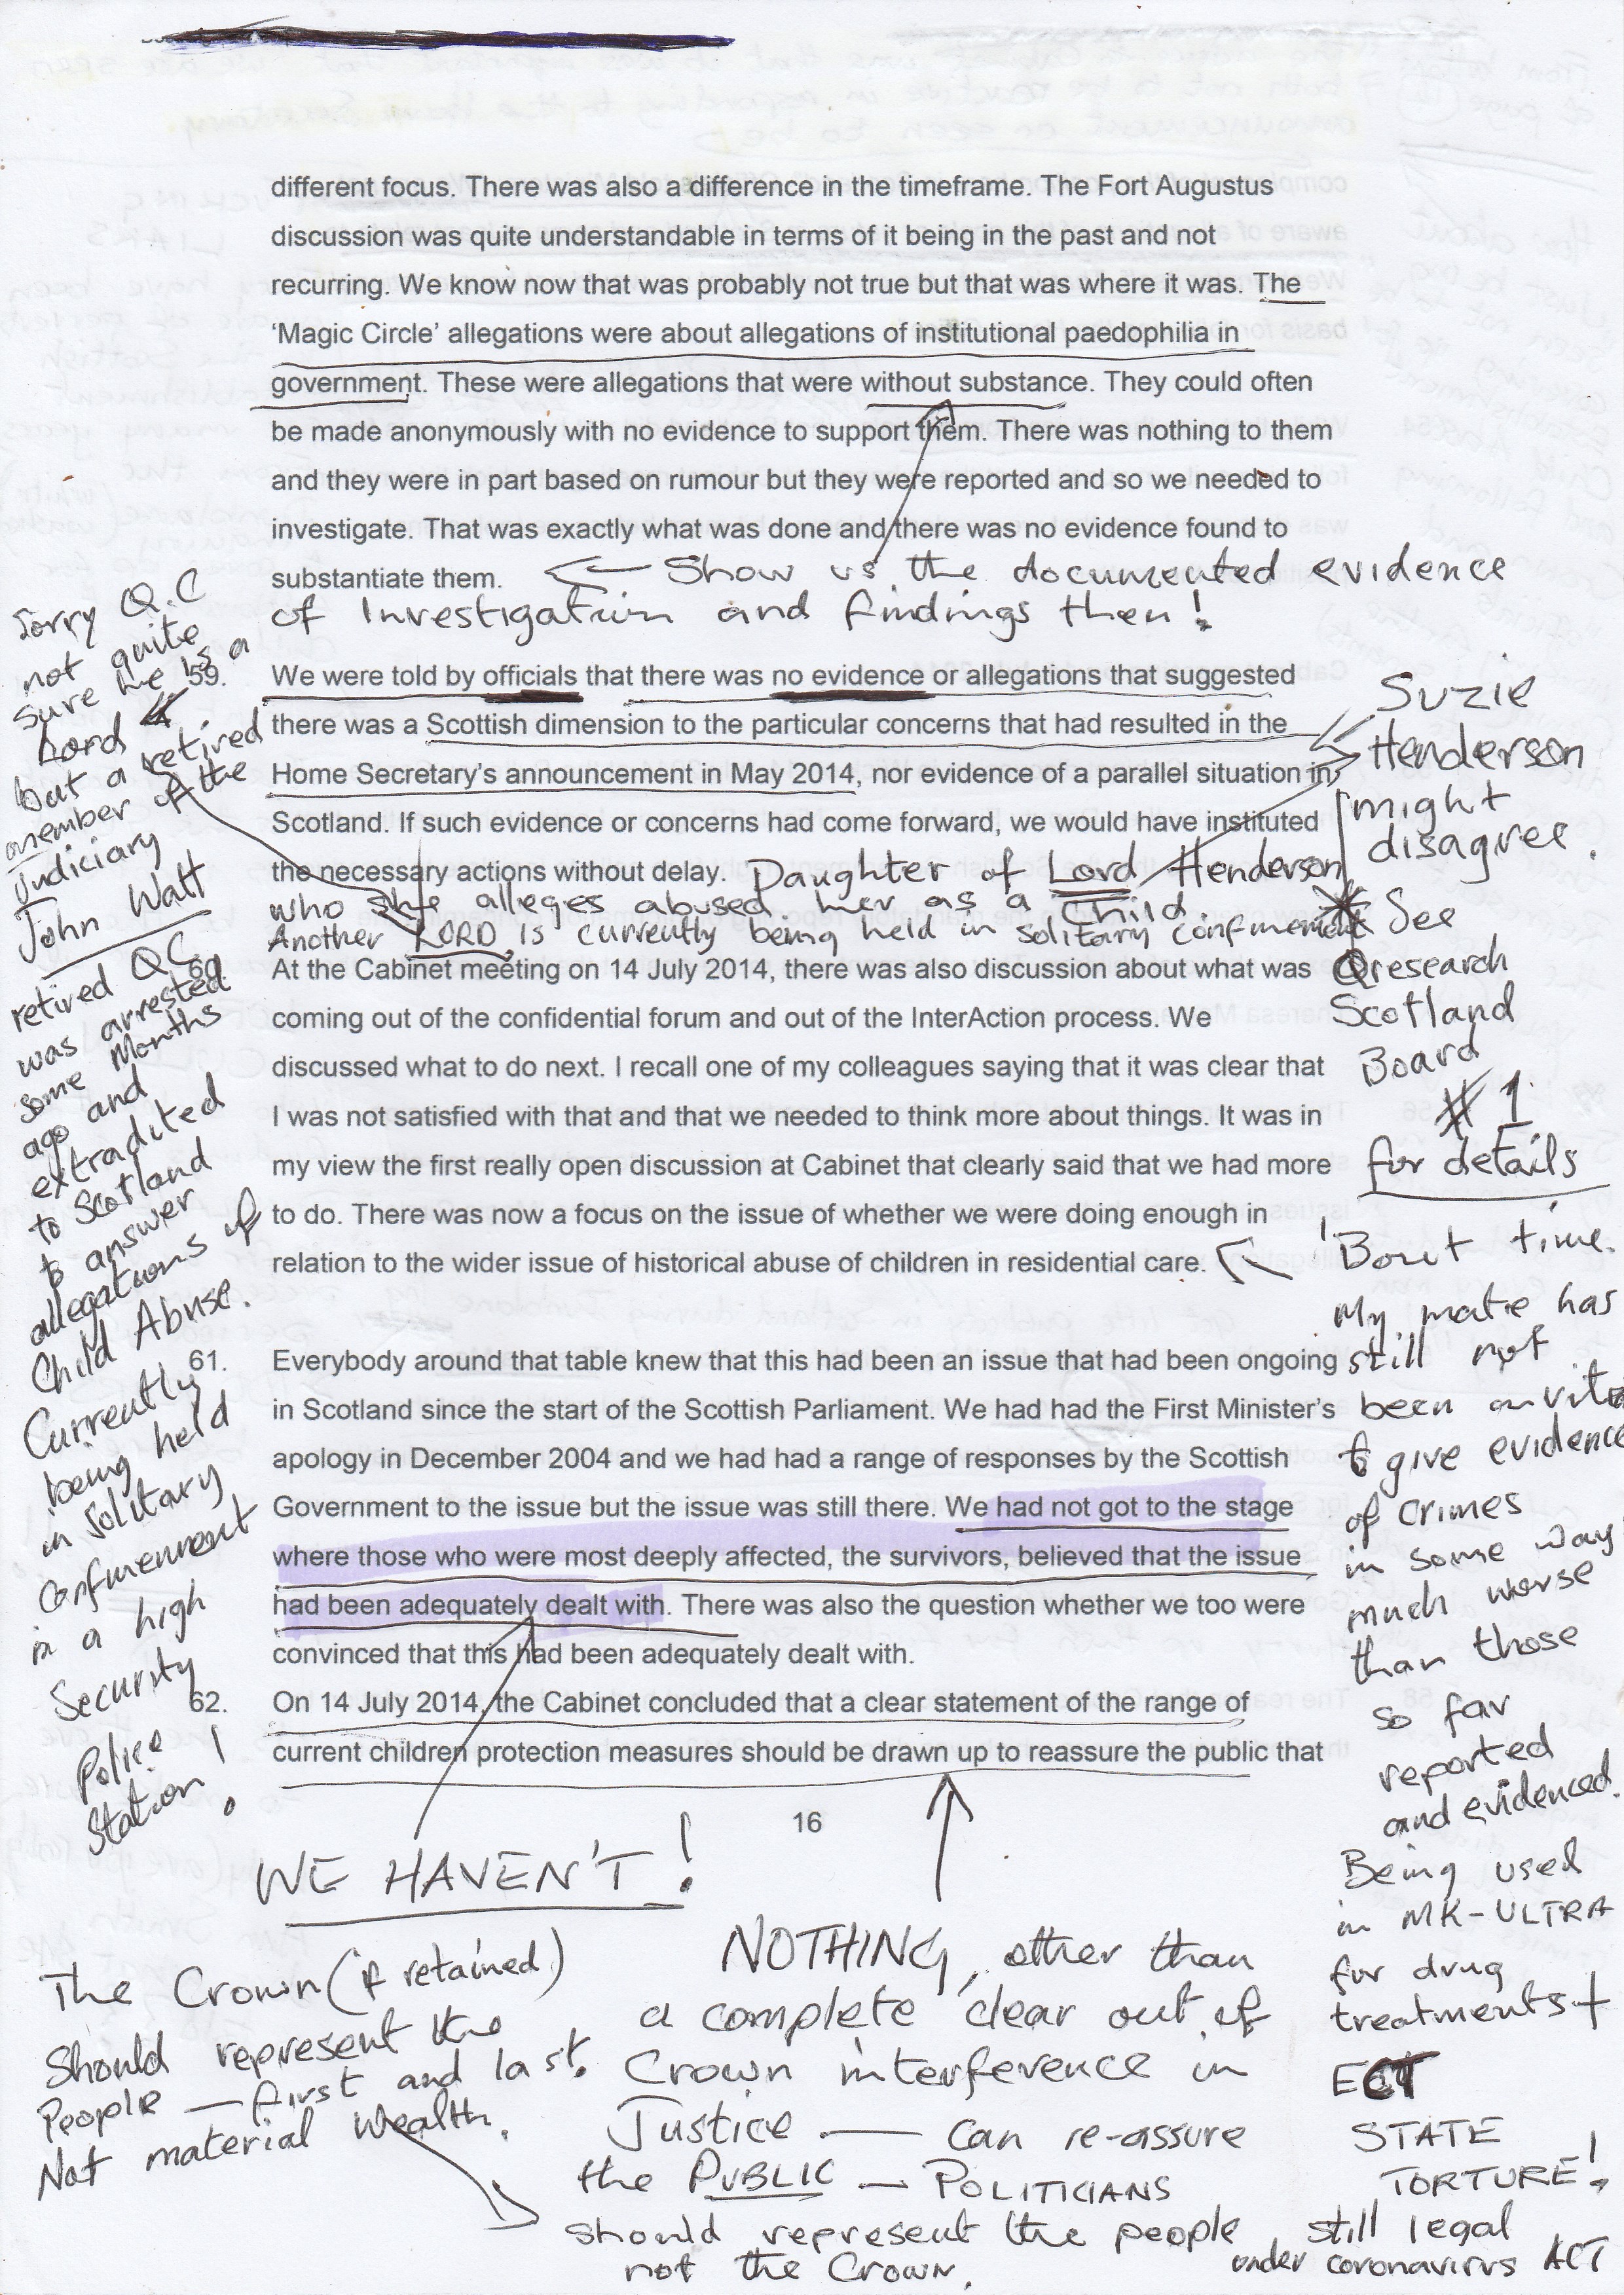 different focus. There was also a difference in the timeframe. The Fort Augustus
discussion was quite understandable in terms of it being in the past and not
recurring. We know now that was probably not true but that was where it was. The
‘Magic Circle’ allegations were about allegations of institutional paedophilia in
government. These were allegations that were without substance. They could often
be made anonymously with no evidence to support them. There was nothing to them
and they were in part based on rumour but they were reported and so we needed to
investigate. That was exactly what was done and there was no evidence found to
substantiate them.
Show us the documented evidence
of Investigation and findings then!
59. We were told by officials that there was no evidence or allegations that suggested
there was a Scottish dimension to the particular concerns that had resulted in the
Home Secretary’s announcement in May 2014, nor evidence of a parallel situation in
Scotland. If such evidence or concerns had come forward, we would have instituted
the necessary actions without delay.
Daughter of Lord Henderson
who she alleges abused her as a Child.
Another LORD is currently being held in solitary confinement
60. At the Cabinet meeting on 14 July 2014, there was also discussion about what was
coming out of the confidential forum and out of the InterAction process. We
discussed what to do next. I recall one of my colleagues saying that it was clear that
I was not satisfied with that and that we needed to think more about things. It was in
my view the first really open discussion at Cabinet that clearly said that we had more
to do. There was now a focus on the issue of whether we were doing enough in
relation to the wider issue of historical abuse of children in residential care.
61. Everybody around that table knew that this had been an issue that had been ongoing
in Scotland since the start of the Scottish Parliament. We had had the First Minister’s
apology in December 2004 and we had had a range of responses by the Scottish
Government to the issue but the issue was still there. We had not got to the stage
where those who were most deeply affected, the survivors, believed that the issue
had been adequately dealt with. There was also the question whether we too were
convinced that this had been adequately dealt with.
62. On 14 July 2014, the Cabinet concluded that a clear statement of the range of
current children protection measures should be drawn up to reassure the public that
16
Sorry Q.C
not quite
sure he is a
Lord
but a retired
member of the
Judiciary
John Watt
retired QC
was arrested
some Months
ago and
extradited
to Scotland
to answer
allegations of
Child Abuse.
Currently
being held
in solitary
confinement
in a high
Security
Police
Station!
Suzie
Henderson
might
disagree.
* See
Qresearch
Scotland
Board
# 1
for details
'Bout time.
My mate has
still not
been invited
to give evidence
of crimes
in some way
much worse
than those
so far
reported
and evidenced.
Being used
in MK-ULTRA
for drug
treatments +
ECT
STATE
TORTURE!
still legal
under coronavirus ACT
WE HAVEN'T!
The Crown (if retained)
Should represent the
People — first and last.
Not material wealth.
NOTHING, other than
a complete clear out of
Crown interference in
Justice — can re-assure
the PUBLIC — POLITICIANS
should represent the people
not the Crown.